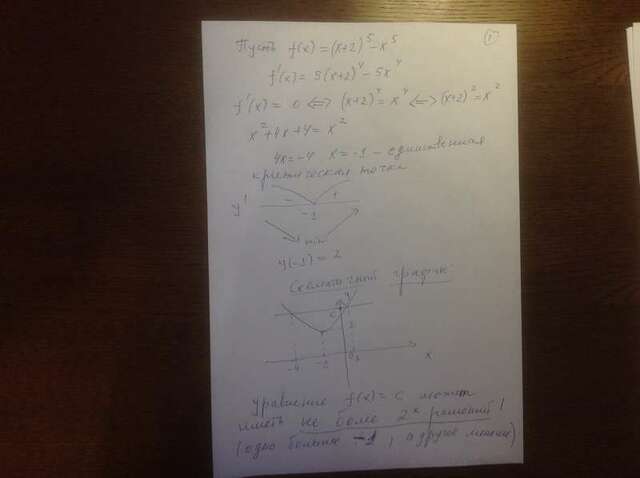 ①
Пусть f(x) = (x+2)⁵ - x⁵
f'(x) = 5(x+2)⁴ - 5x⁴
f'(x) = 0 <=> (x+2)⁴ = x⁴ <=> (x+2)² = x²
x² + 4x + 4 = x²
4x = -4 x = -1 - единственная
критическая точка
- +
y' -1
min
y(-1) = 2
Схематичный график:
y
c
x
уравнение f(x) = c может
иметь не более 2ˣ решений!
(одно больше -1, а другое меньше)